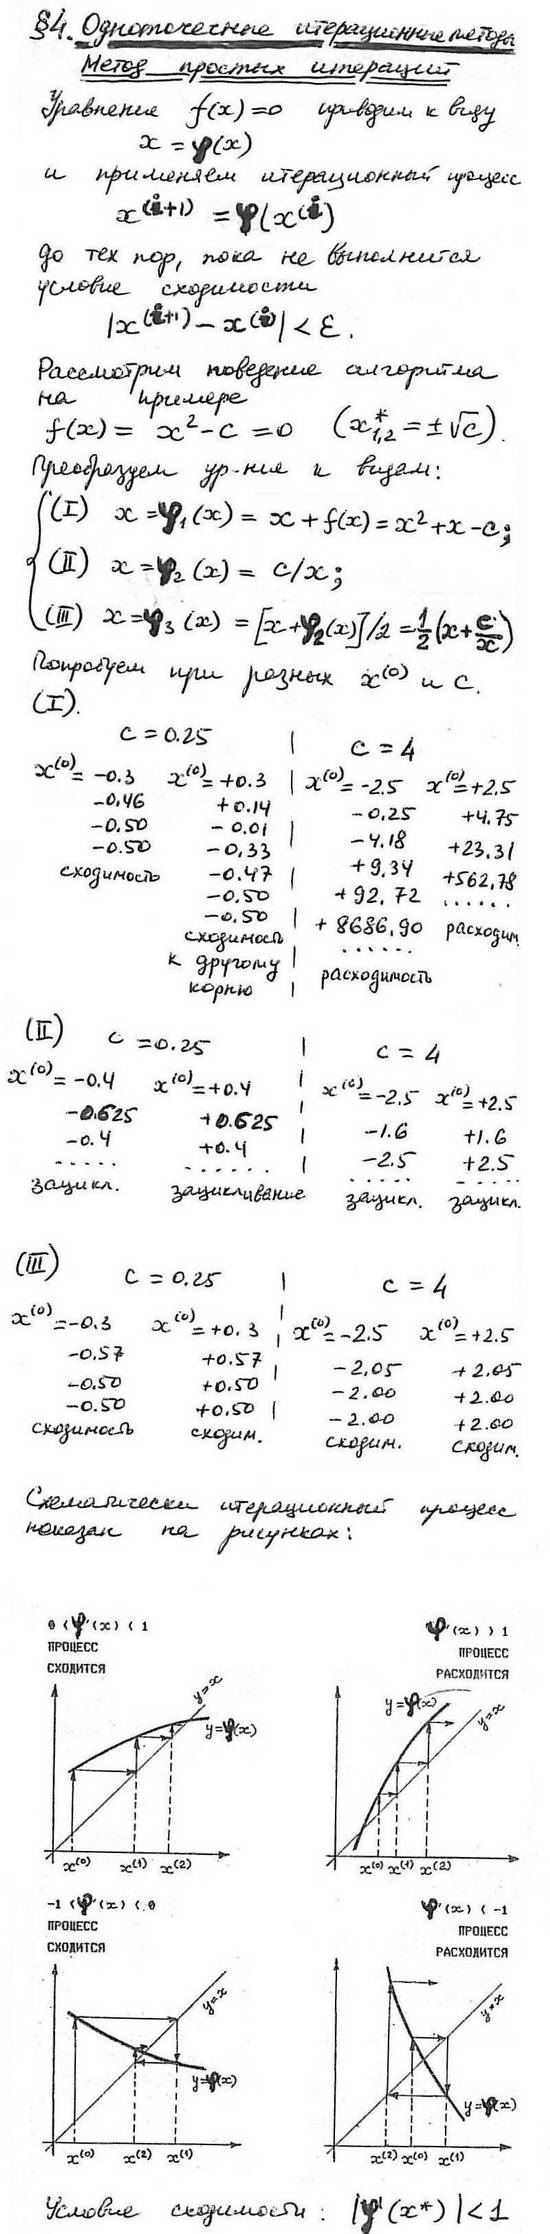 §4. Одноточечные итерационные методы
Метод простых итераций
Уравнение f(x)=0 приводим к виду
x = φ(x)
и применяем итерационный процесс
x^(i+1) = φ(x^(i))
до тех пор, пока не выполнится
условие сходимости
|x^(i+1) – x^(i)| < ε.
Рассмотрим поведение алгоритма
на примере
f(x) = x² – c = 0 (x*₁,₂ = ±√c).
Преобразуем ур-ние к видам:
(I) x = φ₁(x) = x + f(x) = x² + x – c;
(II) x = φ₂(x) = c/x;
(III) x = φ₃(x) = [x + φ₂(x)]/2 = ½(x + c/x)
Попробуем при разных x^(0) и c.
(I).
c = 0.25 | c = 4
x^(0) = -0.3 x^(0) = +0.3 | x^(0) = -2.5 x^(0) = +2.5
-0.46 +0.14 | -0.25 +4.75
-0.50 -0.01 | -4.18 +23.31
-0.50 -0.33 | +9.34 +562.78
сходимость -0.47 | +92.72 ......
-0.50 | +8686.90 расходим.
-0.50 | ......
сходимость | расходимость
к другому |
корню |
(II) c = 0.25 | c = 4
x^(0) = -0.4 x^(0) = +0.4 | x^(0) = -2.5 x^(0) = +2.5
-0.625 +0.625 | -1.6 +1.6
-0.4 +0.4 | -2.5 +2.5
..... ...... ..... .....
зацикл. зацикливание зацикл. зацикл.
(III) c = 0.25 | c = 4
x^(0) = -0.3 x^(0) = +0.3 | x^(0) = -2.5 x^(0) = +2.5
-0.57 +0.57 | -2.05 +2.05
-0.50 +0.50 | -2.00 +2.00
-0.50 +0.50 | -2.00 +2.00
сходимость сходим. сходим. сходим.
Схематически итерационный процесс
показан на рисунках:
0 < φ'(x) < 1
ПРОЦЕСС
СХОДИТСЯ
y=x
y=φ(x)
x^(0) x^(1) x^(2)
φ'(x) > 1
ПРОЦЕСС
РАСХОДИТСЯ
y=φ(x)
y=x
x^(0) x^(1) x^(2)
-1 < φ'(x) < 0
ПРОЦЕСС
СХОДИТСЯ
y=x
y=φ(x)
x^(0) x^(2) x^(1)
φ'(x) < -1
ПРОЦЕСС
РАСХОДИТСЯ
y=x
y=φ(x)
x^(2) x^(0) x^(1)
Условие сходимости: |φ'(x*)| < 1